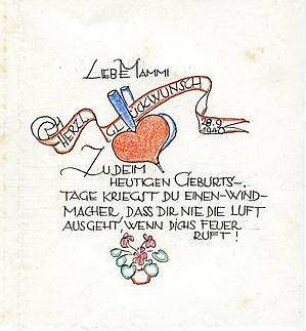 LIEBE MAMMI
HERZL. GLÜCKWUNSCH
28.9.
1940
ZU DEIM
HEUTIGEN GEBURTS-
TAGE KRIEGST DU EINEN-WIND-
MACHER, DASS DIR NIE DIE LUFT
AUSGEHT, WENN DICHS FEUER
RUFT!